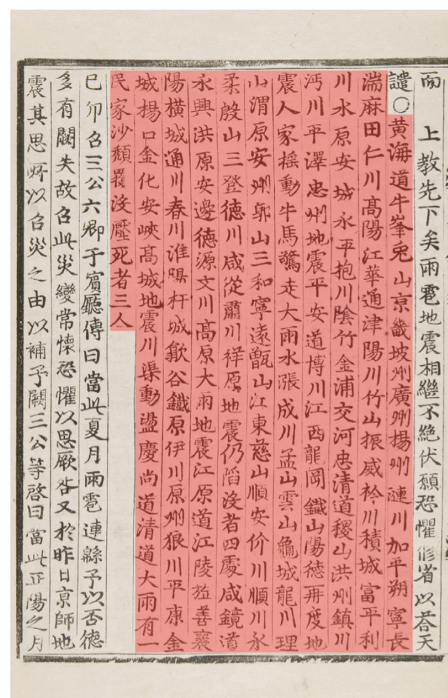 而 上敎先下矣雨雹地震相繼不絶伏願恐懼修省以答天
譴○黃海道牛峯兎山京畿坡州廣州楊州漣川加平朔寧長
湍麻田仁川高陽江華通津陽川竹山振威衿川積城富平利
川水原安城永平抱川陰竹金浦交河忠淸道稷山洪州鎭川
沔川平澤忠州地震平安道博川江西龍岡鐵山陽德再度地
震人家搖動牛馬驚走大雨水漲成川孟山雲山龜城龍川理
山渭原安州郭山三和寧遠甑山江東慈山順安价川順川永
柔殷山三登德川咸從肅川祥原地震仍陷沒者四處咸鏡道
永興洪原安邊德源文川高原大雨地震江原道江陵旌善襄
陽橫城通川春川淮陽杆城歙谷鐵原伊川原州狼川平康金
城楊口金化安峽高城地震川渠動盪慶尙道淸道大雨有一
民家沙頹覆沒壓死者三人
己卯召三公六卿于賓廳傳曰當此夏月雨雹連緜予以否德
多有闕失故召此災變常懷恐懼以思厥咎又於昨日京師地
震其思 所以召災之由以補予闕三公等啓曰當此正陽之月